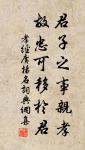 君子之事親孝
故忠可移於君
孝經廣揚名詞典網集